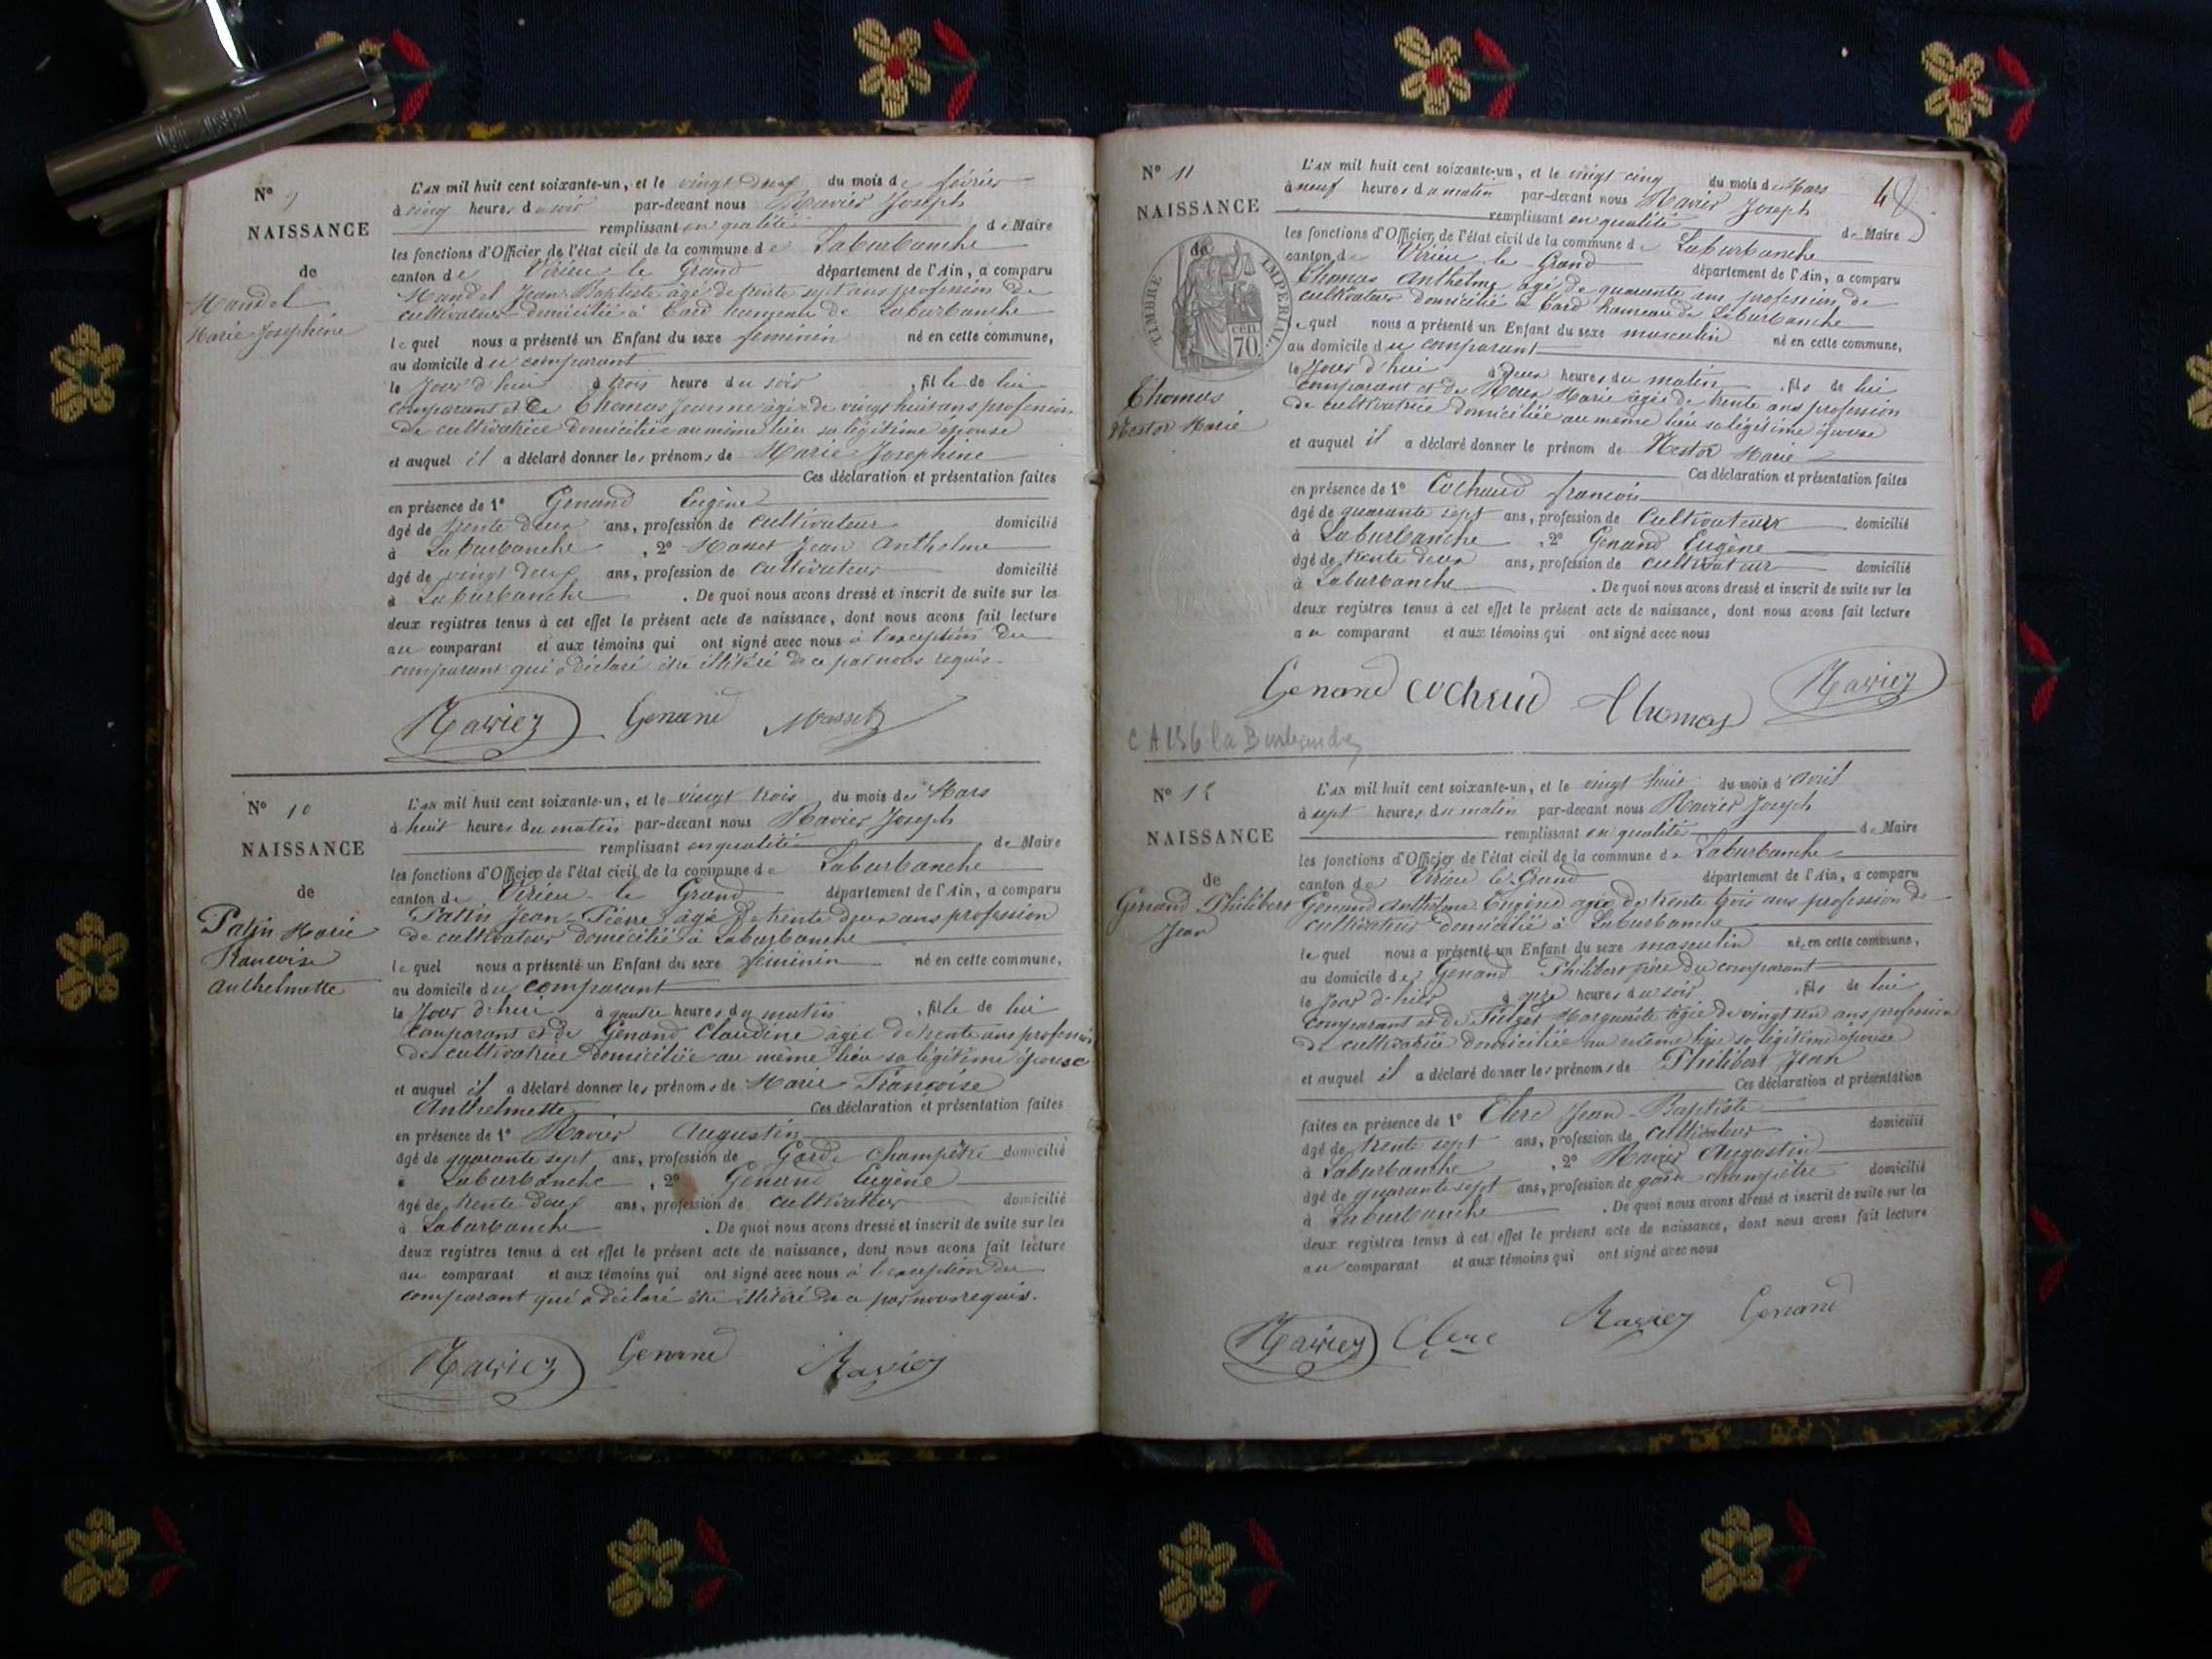 N° 9
NAISSANCE
de
Mandel
Marie Josephine
L'AN mil huit cent soixante-un, et le vingt deux du mois de février
à cinq heures du soir par-devant nous Ravier Joseph
remplissant en qualité de Maire
les fonctions d'Officier de l'état civil de la commune de Laburbanche
canton de Virieu le Grand département de l'Ain, a comparu
Mandel Jean-Baptiste âgé de trente sept ans profession de
cultivateur domicilié à hameau de Laburbanche
lequel nous a présenté un Enfant du sexe feminin né en cette commune,
au domicile du comparant
le Jour d'hui à trois heure du soir , fille de lui
comparant et de Thomas Jeanne âgée de vingt huit ans profession
de cultivatrice domiciliée au même lieu sa légitime épouse
et auquel il a déclaré donner les prénoms de Marie Josephine
Ces déclaration et présentation faites
en présence de 1° Genand Eugène
âgé de trente deux ans, profession de cultivateur domicilié
à Laburbanche , 2° Masset Jean Anthelme
âgé de vingt deux ans, profession de cultivateur domicilié
à Laburbanche . De quoi nous avons dressé et inscrit de suite sur les
deux registres tenus à cet effet le présent acte de naissance, dont nous avons fait lecture
au comparant et aux témoins qui ont signé avec nous à l'exception du
comparant qui a déclaré être illitéré de ce par nous requis.
Ravier Genand Masset
N° 10
NAISSANCE
de
Patin Marie
Francoise
Anthelmette
L'AN mil huit cent soixante-un, et le vingt trois du mois de Mars
à huit heures du matin par-devant nous Ravier Joseph
remplissant en qualité de Maire
les fonctions d'Officier de l'état civil de la commune de Laburbanche
canton de Virieu le Grand département de l'Ain, a comparu
Pattin Jean-Pierre âgé de trente deux ans profession
de cultivateur domicilié à Laburbanche
lequel nous a présenté un Enfant du sexe feminin né en cette commune,
au domicile du comparant
le Jour d'hui à quatre heures du matin , fille de lui
comparant et de Genand Claudine âgée de trente ans profession
de cultivatrice domiciliée au même lieu sa légitime épouse
et auquel il a déclaré donner les prénoms de Marie Françoise
Anthelmette Ces déclaration et présentation faites
en présence de 1° Ravier Augustin
âgé de quarante sept ans, profession de Garde Champêtre domicilié
à Laburbanche , 2° Genand Eugène
âgé de trente deux ans, profession de cultivateur domicilié
à Laburbanche . De quoi nous avons dressé et inscrit de suite sur les
deux registres tenus à cet effet le présent acte de naissance, dont nous avons fait lecture
au comparant et aux témoins qui ont signé avec nous à l'exception du
comparant qui a déclaré être illitéré de ce par nous requis.
Ravier Genand Ravier
48
N° 11
NAISSANCE
de
TIMBRE IMPERIAL
70 cen
Thomas
Nestor Marie
L'AN mil huit cent soixante-un, et le vingt cinq du mois de Mars
à neuf heures du matin par-devant nous Ravier Joseph
remplissant en qualité de Maire
les fonctions d'Officier de l'état civil de la commune de Laburbanche
canton de Virieu le Grand département de l'Ain, a comparu
Thomas Anthelme âgé de quarante ans profession de
cultivateur domicilié à hameau de Laburbanche
lequel nous a présenté un Enfant du sexe masculin né en cette commune,
au domicile du comparant
le Jour d'hui à deux heures du matin , fils de lui
comparant et de Marie âgée de trente ans profession
de cultivatrice domiciliée au même lieu sa légitime épouse
et auquel il a déclaré donner le prénom de Nestor Marie
Ces déclaration et présentation faites
en présence de 1° Cochaud francois
âgé de quarante sept ans, profession de Cultivateur domicilié
à Laburbanche , 2° Genand Eugène
âgé de trente deux ans, profession de cultivateur domicilié
à Laburbanche . De quoi nous avons dressé et inscrit de suite sur les
deux registres tenus à cet effet le présent acte de naissance, dont nous avons fait lecture
au comparant et aux témoins qui ont signé avec nous
Genand Cochaud Thomas Ravier
N° 12
NAISSANCE
de
Genand Philibert
Jean
L'AN mil huit cent soixante-un, et le vingt huit du mois d'Avril
à sept heures du matin par-devant nous Ravier Joseph
remplissant en qualité de Maire
les fonctions d'Officier de l'état civil de la commune de Laburbanche
canton de Virieu le Grand département de l'Ain, a comparu
Genand Anthelme Eugène âgé de trente trois ans profession de
cultivateur domicilié à Laburbanche
lequel nous a présenté un Enfant du sexe masculin né en cette commune,
au domicile de Genand Philibert père du comparant
le Jour d'hier à onze heures du soir , fils de lui
comparant et de Marguerite âgée de vingt un ans profession
de cultivatrice domiciliée au même lieu sa légitime épouse
et auquel il a déclaré donner les prénoms de Philibert Jean
Ces déclaration et présentation
faites en présence de 1° Clerc Jean-Baptiste
âgé de trente sept ans, profession de cultivateur domicilié
à Laburbanche , 2° Ravier Augustin
âgé de quarante sept ans, profession de garde champêtre domicilié
à Laburbanche . De quoi nous avons dressé et inscrit de suite sur les
deux registres tenus à cet effet le présent acte de naissance, dont nous avons fait lecture
au comparant et aux témoins qui ont signé avec nous
Ravier Clerc Ravier Genand